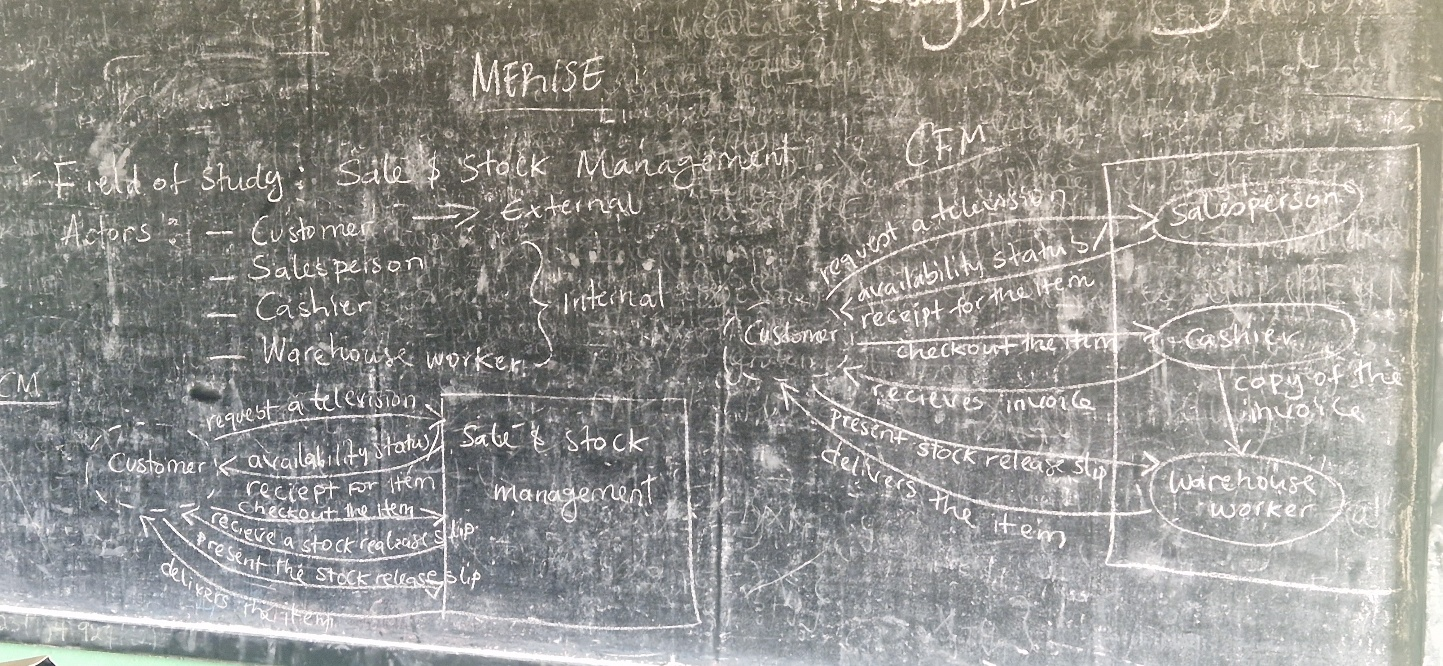 MERISE
Field of study: Sale & Stock Management
Actors: - Customer → External
- Salesperson
- Cashier
- Warehouse worker
Internal
CM
request a television
availability status/
reciept for item
Customer
checkout the item
recieve a stock realease slip
present the stock release slip
delivers the item
Sale & stock
management
CFM
request a television
availability status/
receipt for the item
Customer
checkout the item
recieves invoice
present stock release slip
delivers the item
Salesperson
Cashier
copy of the
invoice
Warehouse
worker